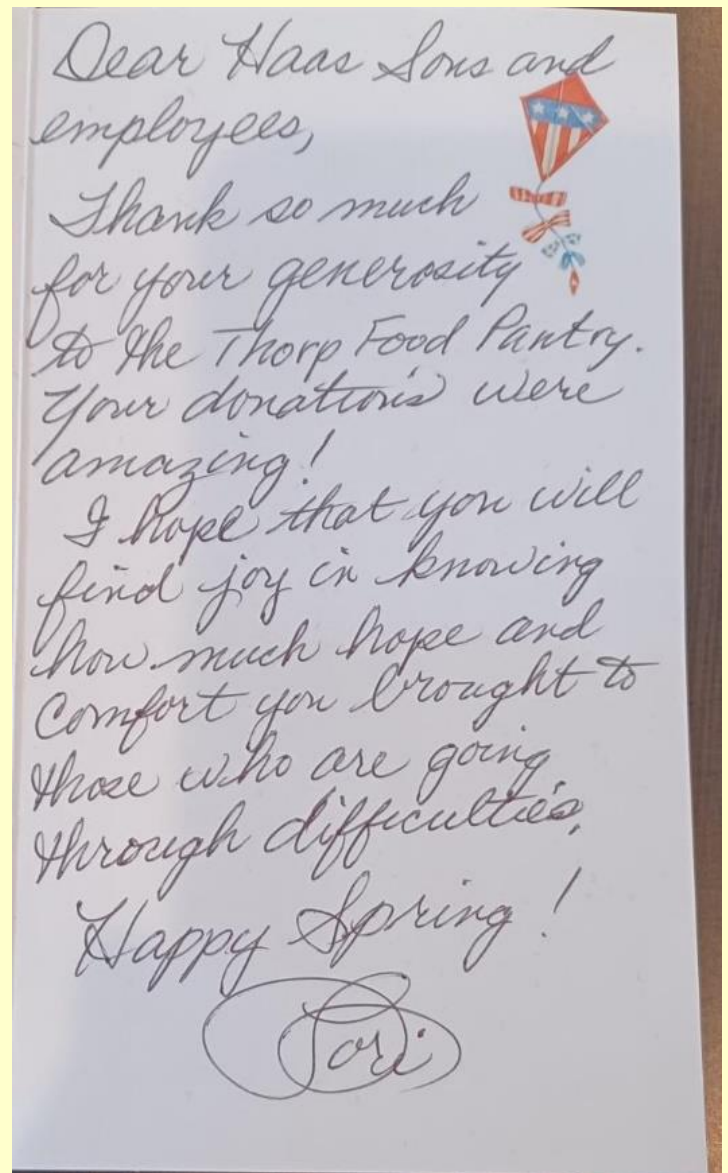 Dear Haas Sons and
employees,
Thank so much
for your generosity
to the Thorp Food Pantry.
Your donations were
amazing!
I hope that you will
find joy in knowing
how much hope and
comfort you brought to
those who are going
through difficulties.
Happy Spring!
Lori